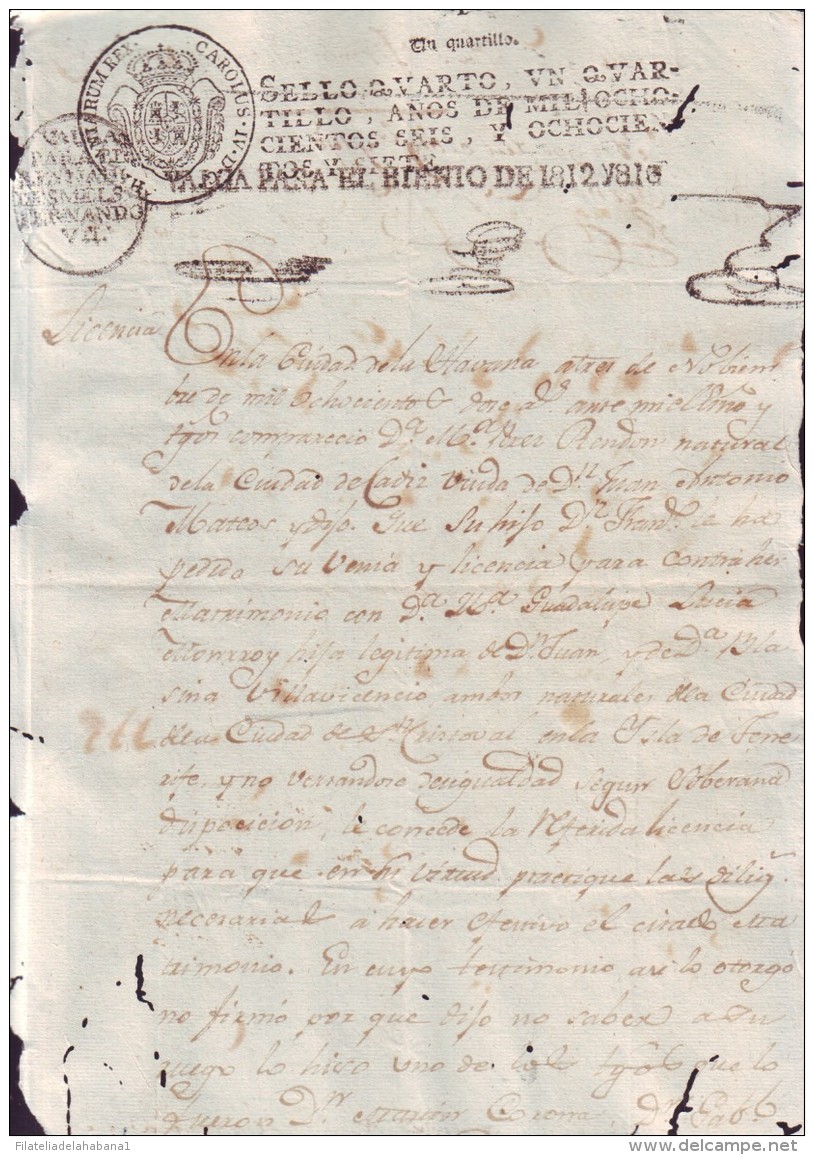 Un quartillo.
HISPANIARUM REX. CAROLUS·IV·D·
SELLO QVARTO, VN QVAR-
TILLO, AÑOS DE MIL OCHO-
CIENTOS SEIS, Y OCHOCIEN
TOS Y SIETE.
PARA EL BIENIO DE 1812 Y 813
FERNANDO
VII.
Licencia
En la Ciudad de la Havana a tres de Nobiem
bre de mil ochocientos dose a.s ante mi el SSno y
tgos comparecio D.a M.a Rendon natural
de la Ciudad de Cadiz Viuda de D.n Juan Antonio
Mateos y dijo: Que su hijo D.n Fran.co le ha
pedido su venia y licencia para contraher
Matrimonio con D.a M.a Guadalupe Lucia
Monrroy hija legitima de D.n Juan, y de D.a Bla
sina Villavicencio ambos naturales de la Ciudad
de la Ciudad de S.n Cristoval en la Isla de Tene
rife, y no versandose desigualdad segun Soberana
disposicion, le concede la Referida licencia
para que en su virtud practique las dilig.s
necesarias a haser efectivo el citado Ma
trimonio. En cuyo testimonio asi lo otorgo
no firmó por que dijo no saber a su
ruego lo hiso uno de los tgos que lo
fueron D.n Corona, D.n Gab.l
Filateliadelahabana1